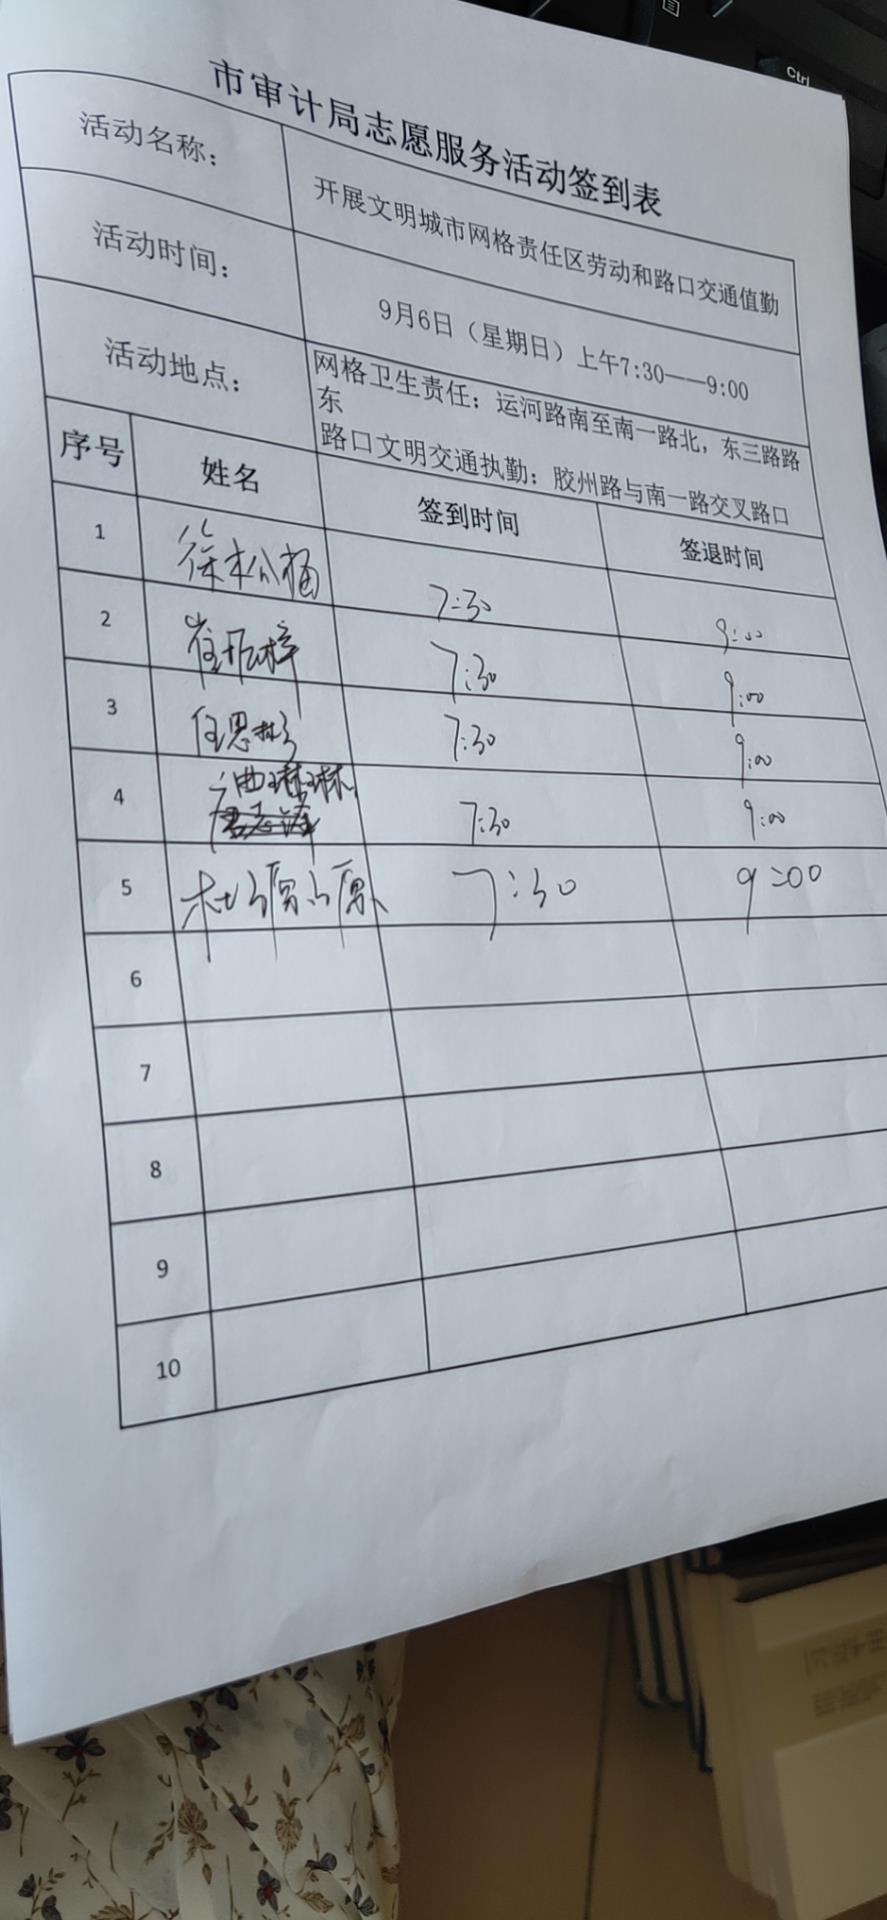 Ctrl
市审计局志愿服务活动签到表
活动名称： 开展文明城市网格责任区劳动和路口交通值勤
活动时间： 9月6日（星期日）上午7:30——9:00
活动地点： 网格卫生责任：运河路南至南一路北，东三路路
东
路口文明交通执勤：胶州路与南一路交叉路口
序号 姓名 签到时间 签退时间
1 7:30 9:00
2 7:30 9:00
3 任思彬 7:30 9:00
4 曲琳琳 7:30 9:00
5 杜源源 7:30 9:00
6
7
8
9
10